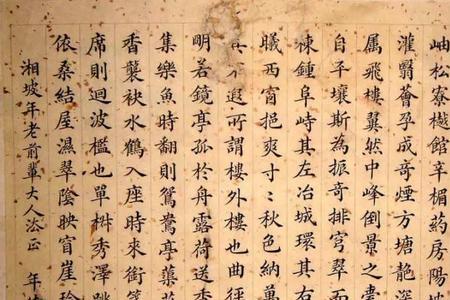 岫松寮樾館辛楣藥房陽
灌翳薈孕成奇煙方塘静深
属飛樓翼然中峰倒景之
自平壤斯為振奇排穹翠
棟鍾阜峙其左冶城環其右
曦西窅挹爽寸寸秋色納萬
不遐所謂樓外樓也曲徑
明若鏡亭孤於舟露荷送香
集樂魚時翻則鴛鴦亭蕖
香襲袂水鶴入座時來銜
席則迴波檻也單椒秀澤
依桑結屋濕翠陰映窅崖
湘坡年老前輩大人法正 年